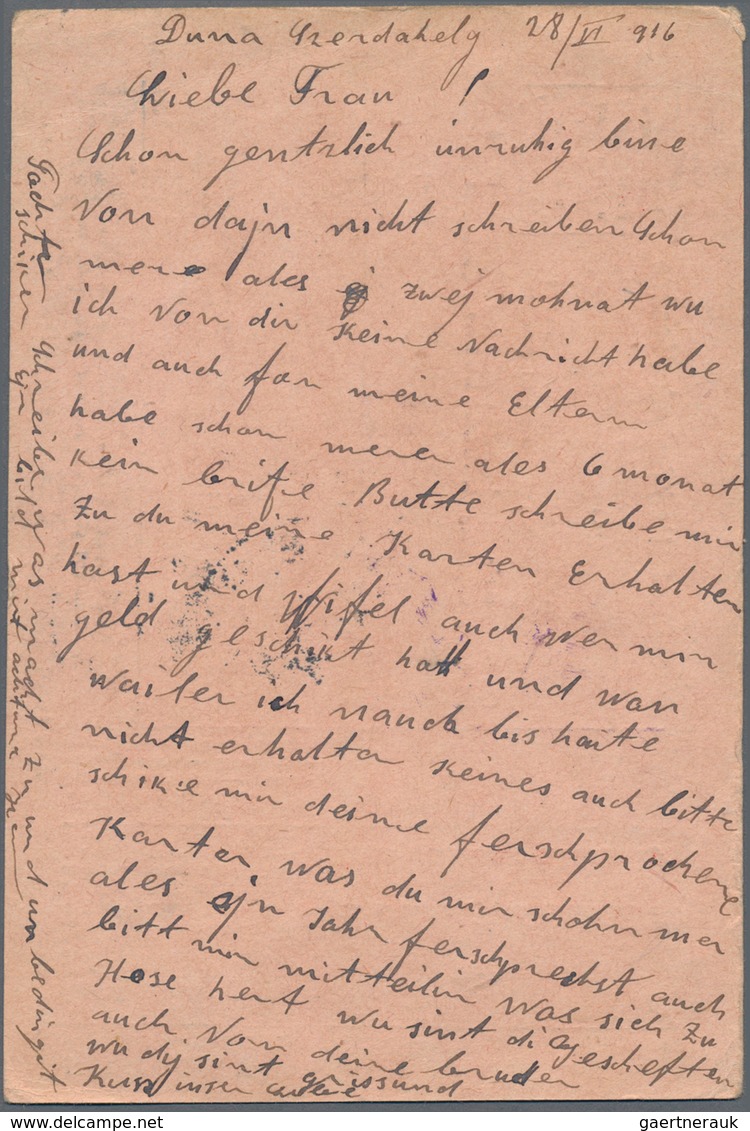 Duna Szerdahely 28/VI 916
Liebe Frau !
Schon gentzlich unruhig binne
Von dajn nicht schreiben Schon
mere ales zwej mohnat wu
ich von dir keine Nachricht habe
und auch fon meine Eltern
habe schon merer ales 6 monat
kein brife Butte schreibe mir
Zu du meine Karten Erhalten
hast und Wifel auch wer mir
geld geschikt hatt und wan
wailer ich nauch bis haite
nicht erhalten keines auch bitte
schike mir deine ferschprochene
Karten was du mir schohn mer
ales ejn Jahr ferschprechst auch
bitt mir mitteilin was sich zu
Hose hert wu sint di Gescheften
auch von deine bruder
wu dij sint grissund
Kuss inser
Tachter Schreibe was macht zu und unbedingt
schiken Ejn bild mit
gaertnerauk